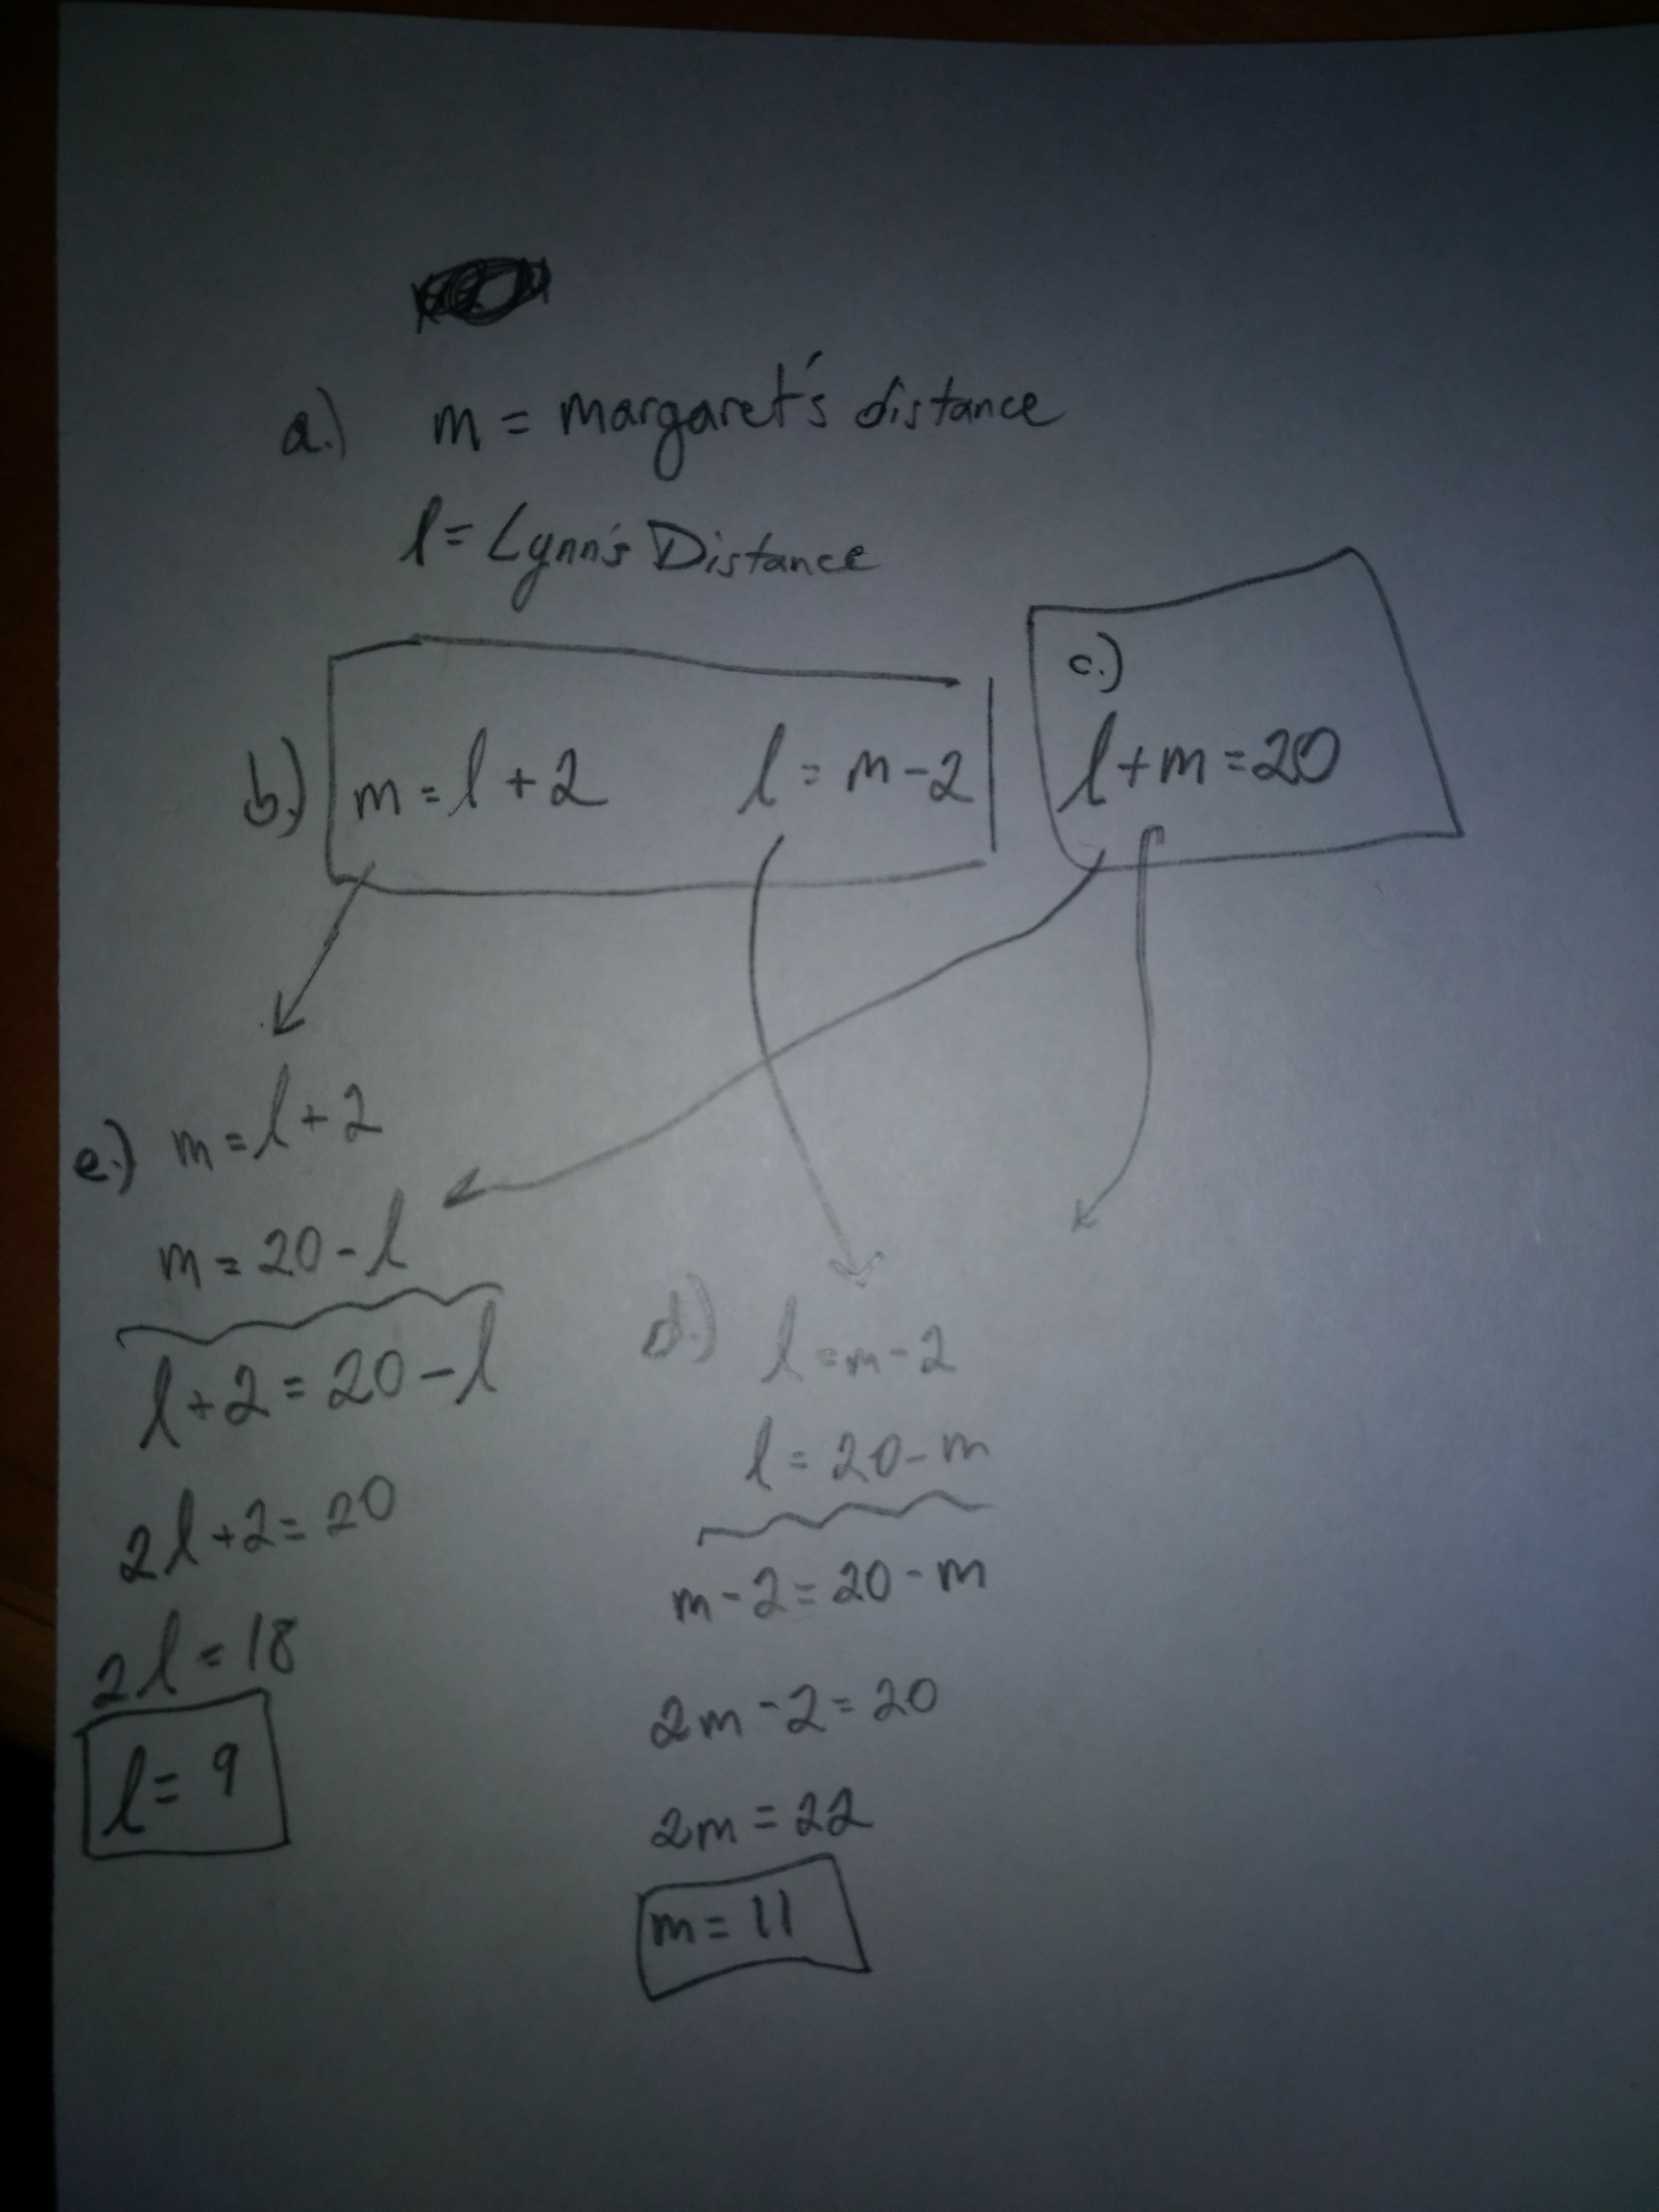 a.) m = margaret's distance
l = Lynn's Distance
b.) m = l + 2 l = m - 2
c.)
l + m = 20
e.) m = l + 2
m = 20 - l
l + 2 = 20 - l
2l + 2 = 20
2l = 18
l = 9
d.) l = m - 2
l = 20 - m
m - 2 = 20 - m
2m - 2 = 20
2m = 22
m = 11